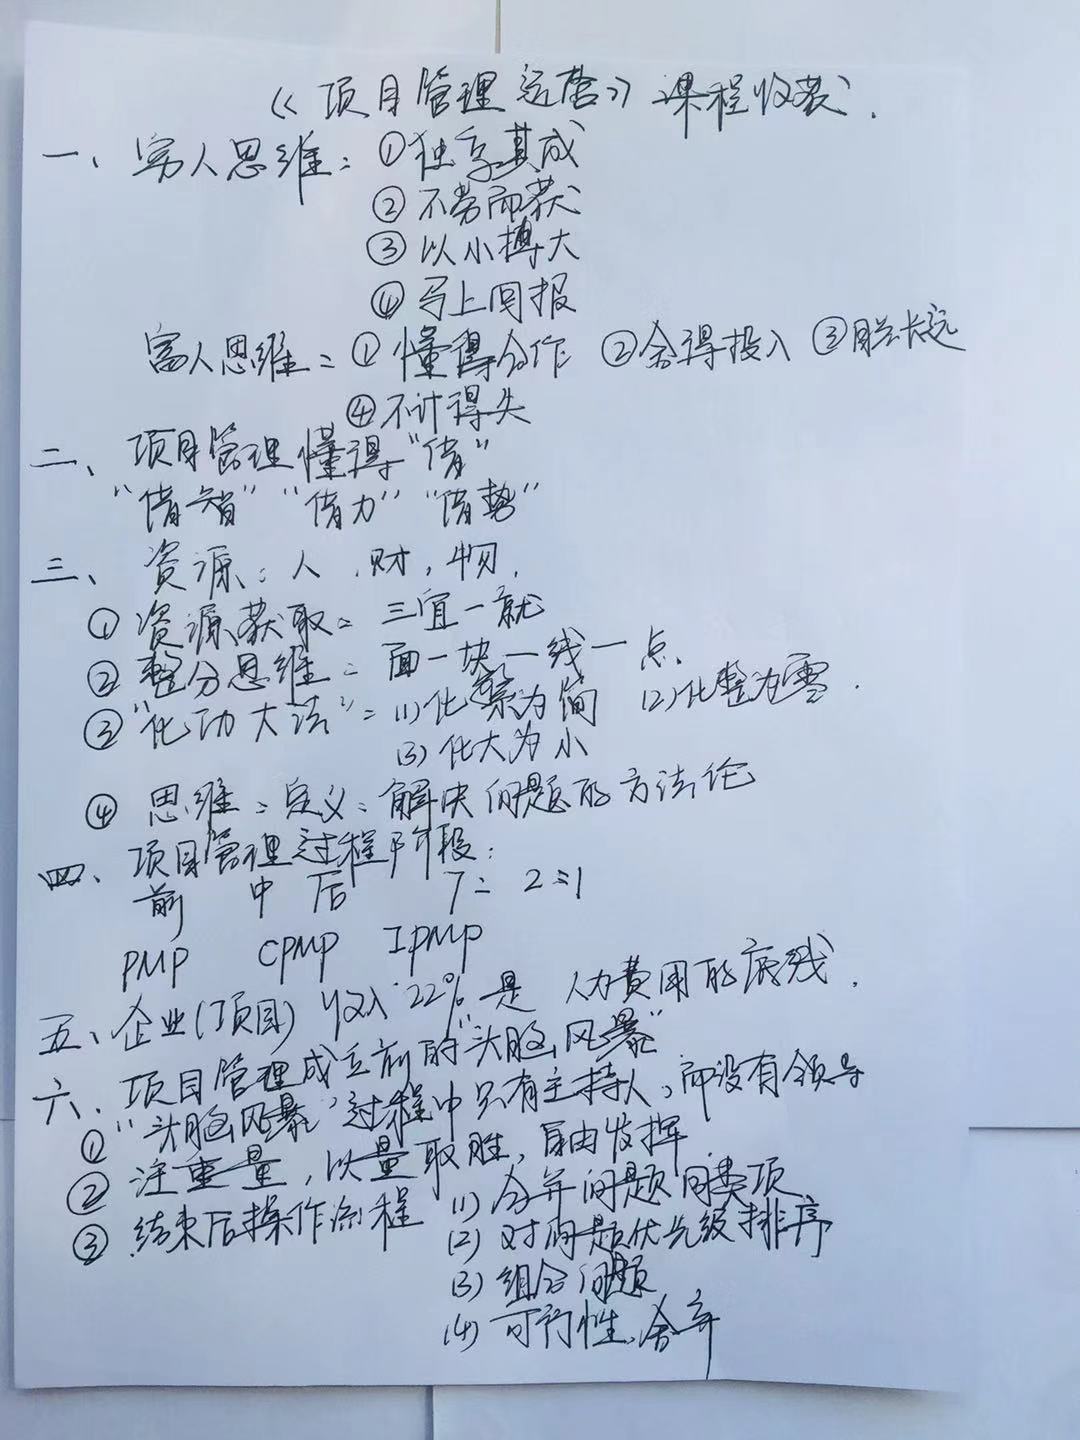 《项目管理运营》课程收获.
一、穷人思维：①独享其成
②不劳而获
③以小搏大
④马上回报
富人思维：①懂得合作 ②舍得投入 ③眼光长远
④不计得失
二、项目管理懂得“借”
“借智”“借力”“借势”
三、资源：人、财，物.
①资源获取：三宜一就
②整分思维：面一块一线一点.
③“化功大法”：(1)化繁为简 (2)化整为零.
(3)化大为小
④思维：定义：解决问题的方法论
四、项目管理过程阶段：
前 中 后 7：2：1
PMP CPMP IPMP
五、企业(项目)收入22%是人力费用的底线.
六、项目管理成立前的“头脑风暴”
①“头脑风暴”过程中只有主持人，而没有领导
②注重量，以量取胜，自由发挥.
③结束后操作流程 (1)合并问题同类项
(2)对问题优先级排序
(3)组合问题
(4)可行性、舍弃